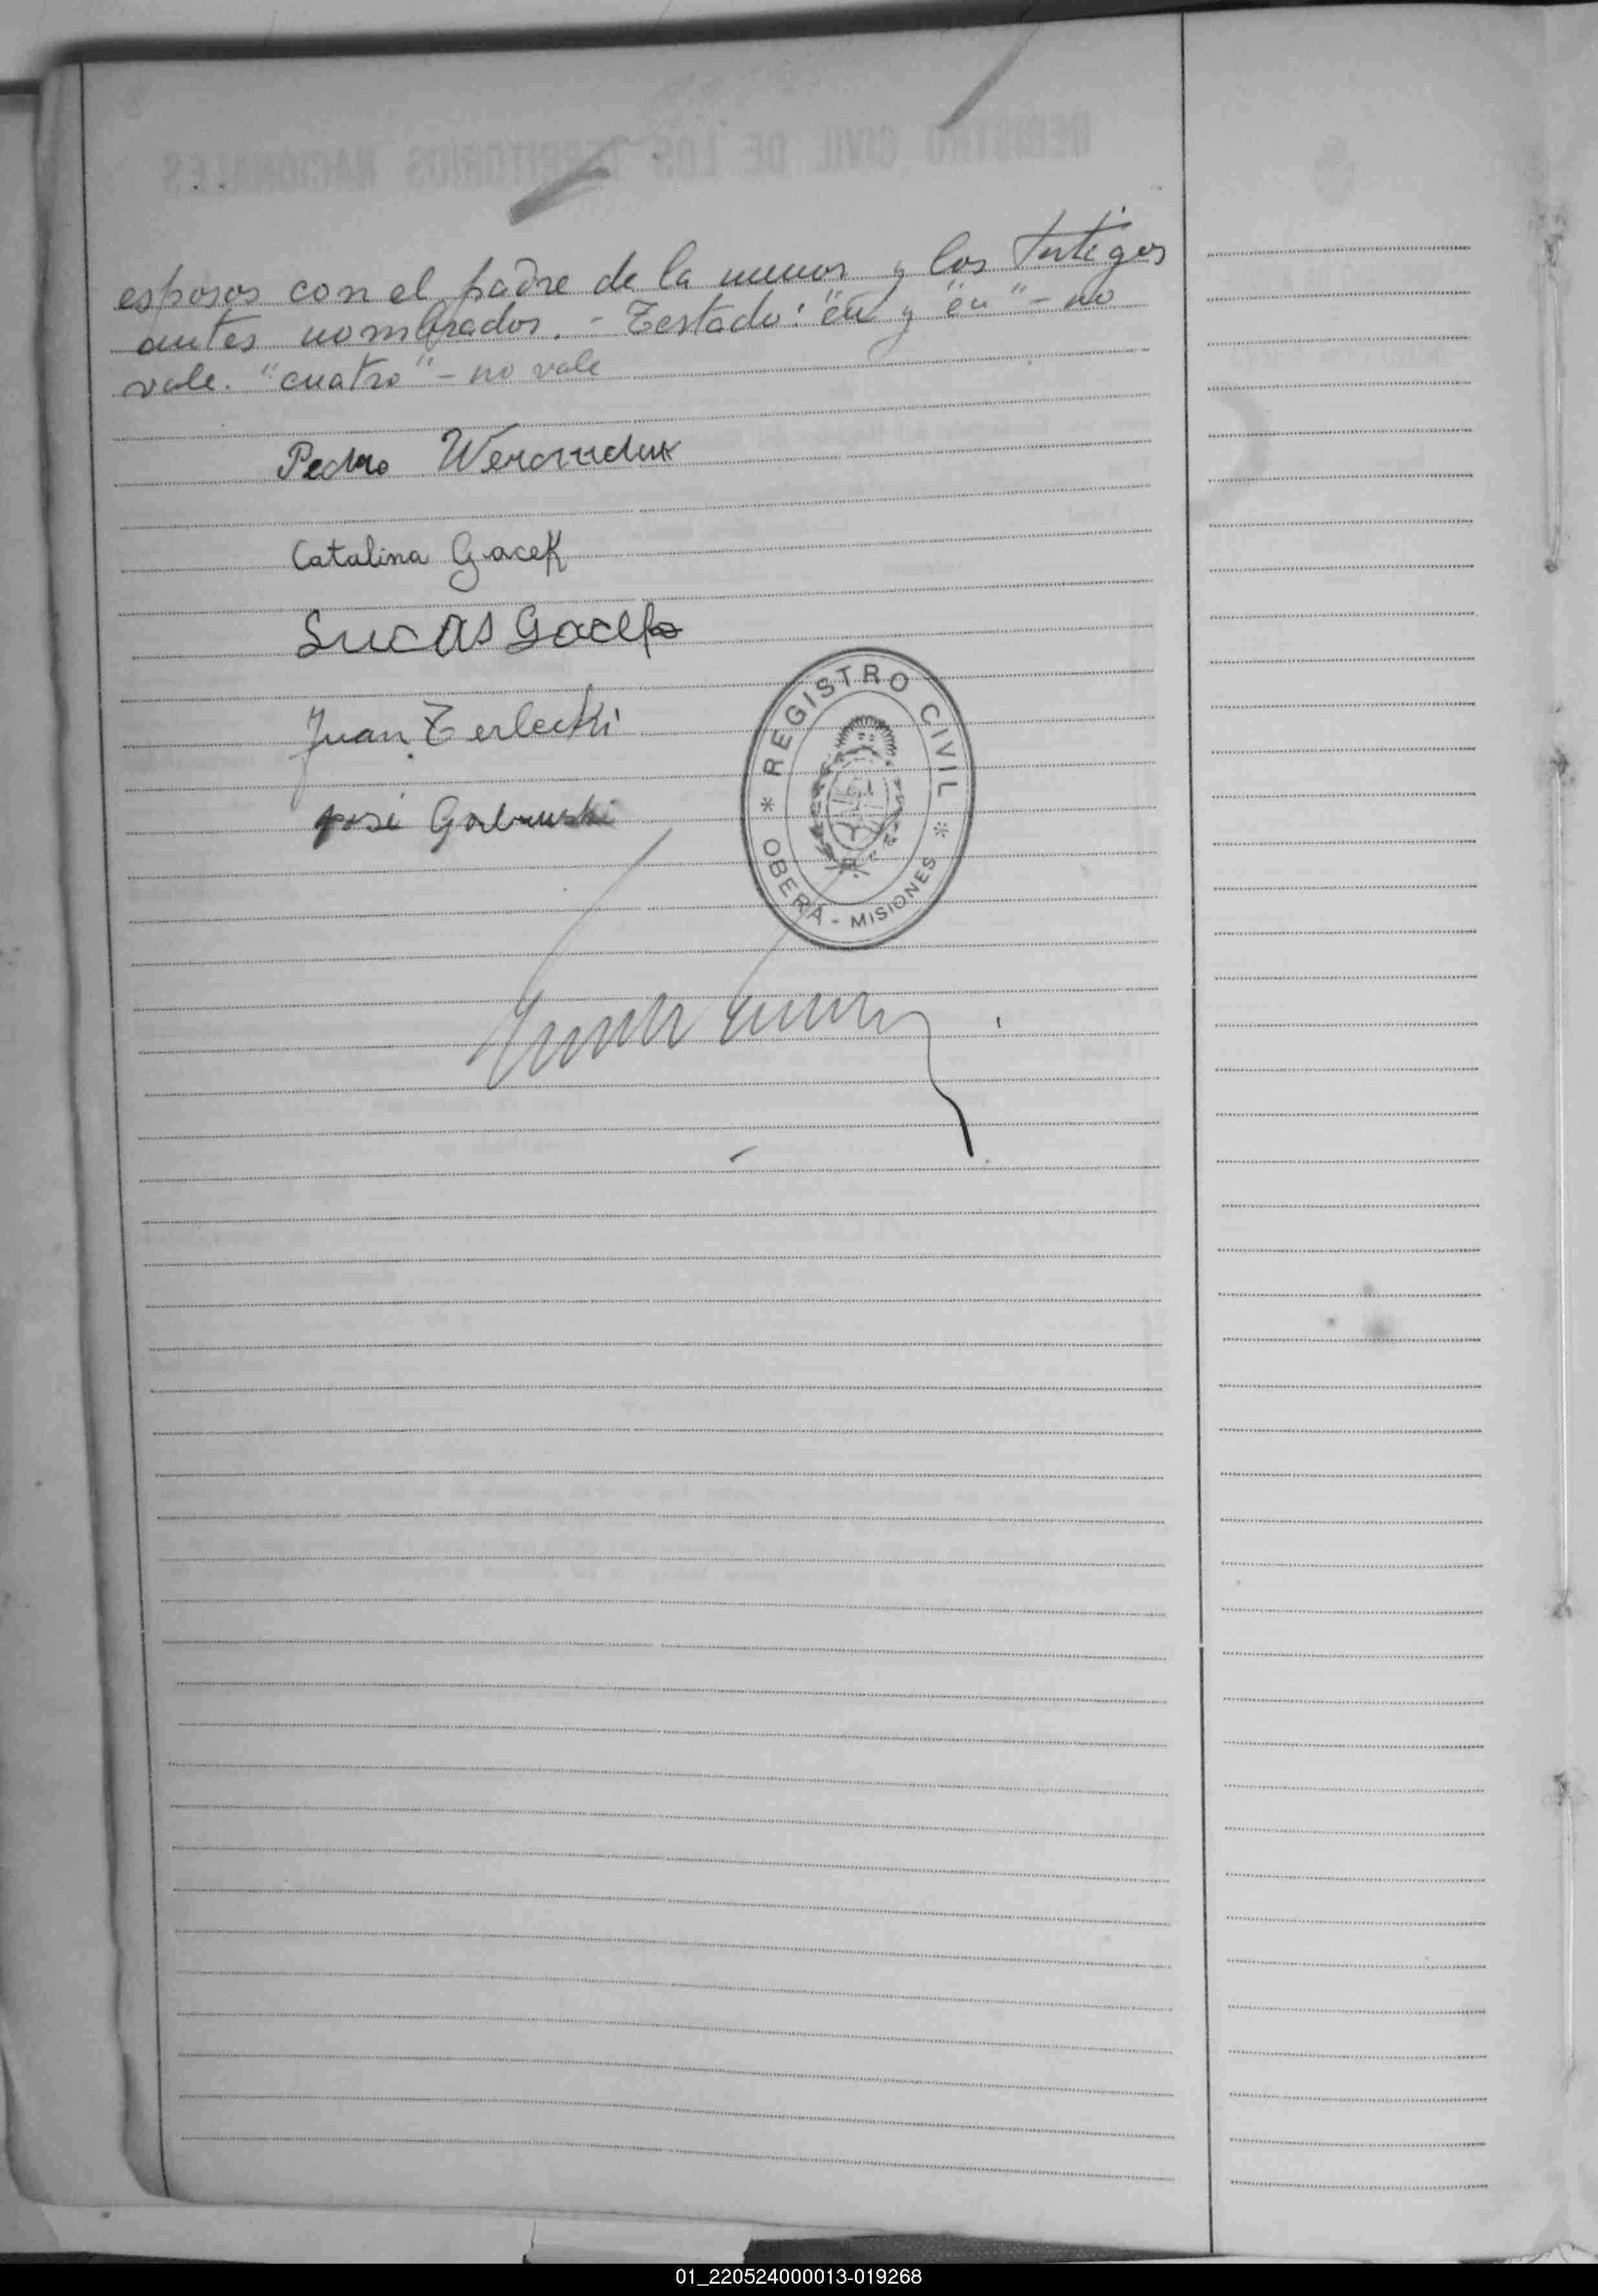 esposos con el padre de la menor y los testigos
antes nombrados. - Testado: "en" y "en" - no
vale. "cuatro" - no vale
Pedro
Catalina Gacek
Lucas Gacek
Juan Terlecki
José
REGISTRO CIVIL
OBERÁ - MISIONES
01_220524000013-019268